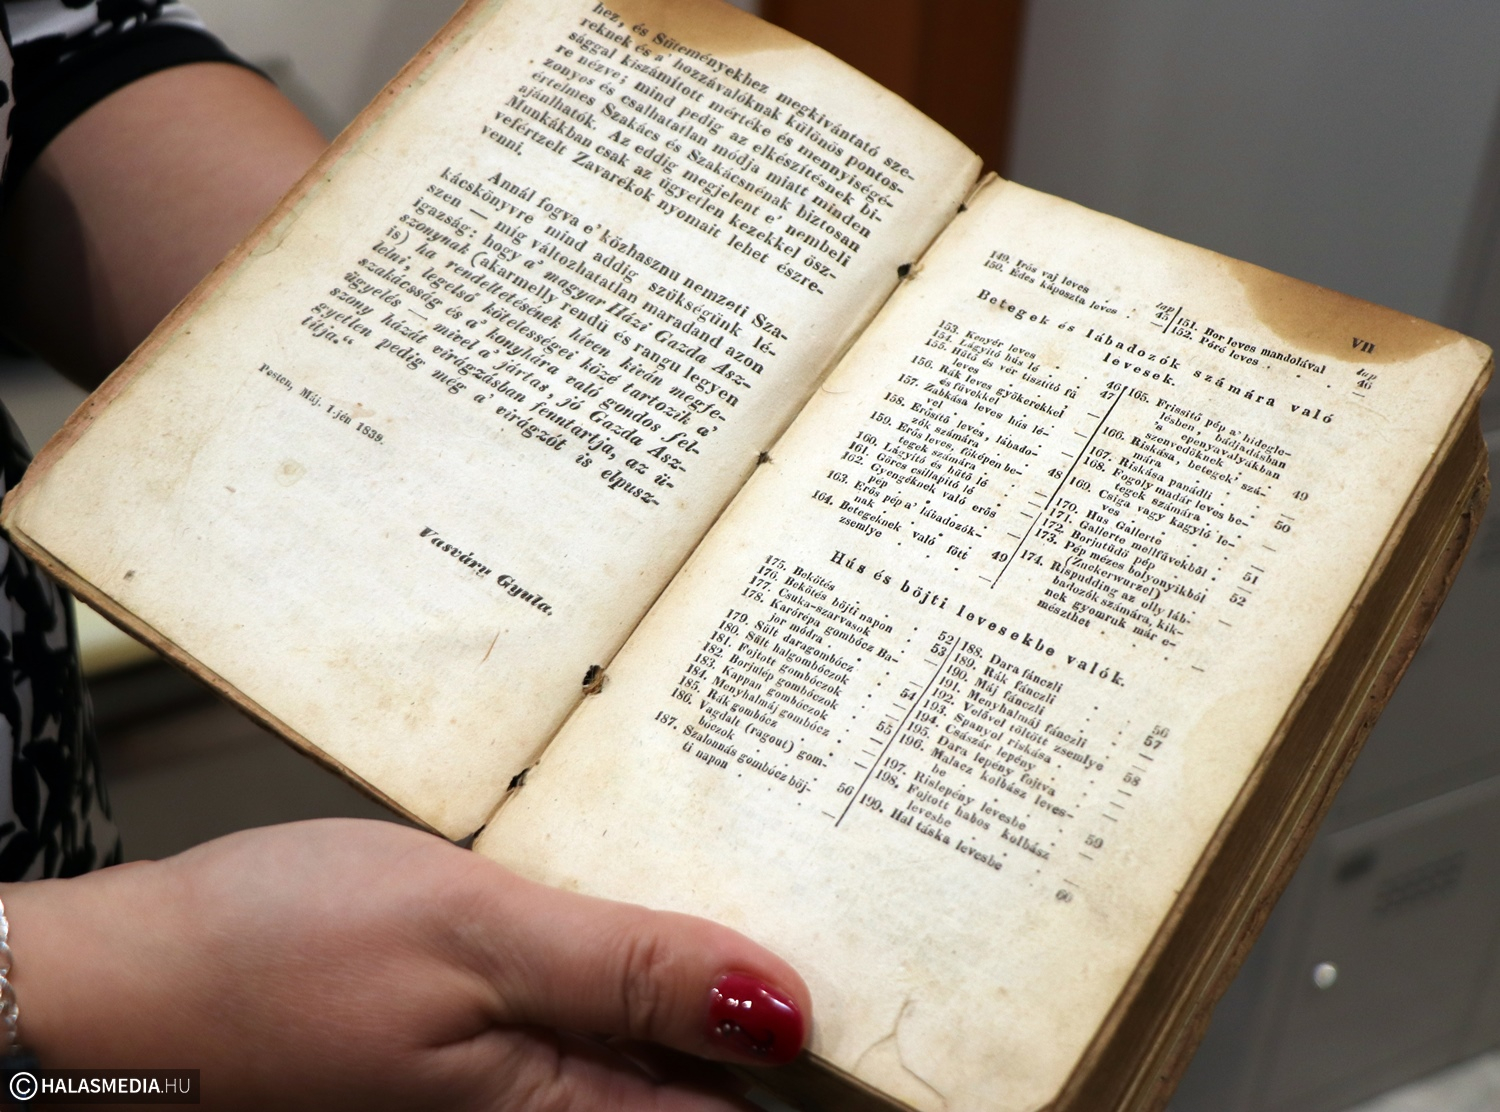 hez, és Süteményekhez megkivántató sze-
reknek és a' hozzávalóknak különös pontos-
sággal kiszámított mértéke és mennyiségé-
re nézve; mind pedig az elkészítésnek bi-
zonyos és csalhatatlan módja miatt minden
értelmes Szakács és Szakácsnénak biztosan
ajánlhatók. Az eddig megjelent e' nembeli
Munkákban csak az ügyetlen kezekkel ösz-
vefértzelt Zavarékok nyomait lehet észre-
venni.
Annál fogva e' közhasznu nemzeti Sza-
kácskönyvre mind addig szükségünk lé-
szen — míg változhatatlan maradand azon
igazság: hogy a' magyar Házi Gazda Asz-
szonynak (akarmelly rendü és rangu legyen
is) ha rendeltetésének híven kíván megfe-
lelni, legelső kötelességei közé tartozik a'
szakácsság és a' konyhára való gondos fel-
ügyelés — mivel a' jártas, jó Gazda Asz-
szony házát virágzásban fenntartja, az ü-
gyetlen pedig még a' virágzót is elpusz-
títja.“
Pesten, Máj. 1-jén 1839.
Vasváry Gyula.
VII
lap
149. Irós vaj leves . 45
150. Édes káposzta leves . —
lap
151. Bor leves mandolával 46
152. Póré leves . . . —
Betegek és lábadozók számára való
levesek.
153. Konyér leves 46
154. Lágyító hús lé . 47
155. Hűtő és vér tisztító fű
leves . . . —
156. Rák leves gyökerekkel
és füvekkel . —
157. Zabkása leves hús lé-
vel . . . —
158. Erősítő leves, lábado-
zók számára . 48
159. Erős leves, főképen be-
tegek számára . —
160. Lágyító és hűtő lé . —
161. Görcs csillapító lé . —
162. Gyengéknek való erős
pép . . . —
163. Erős pép a' lábadozók-
nak . . . 49
164. Betegeknek való főtt
zsemlye . . —
165. Frissitő pép a' hidegle-
lésben, bádjadásban
's epenyavalyákban
szenvedőknek . 49
166. Riskása, betegek' szá-
mára . . . —
167. Riskása panádli . . 50
168. Fogoly madár leves be-
tegek számára . . —
169. Csiga vagy kagyló le-
ves . . . —
170. Hus Gallerte . . —
171. Gallerte mellfüvekből . 51
172. Borjutüdő pép . . —
173. Pép mézes bolyonyikból
(Zuckerwurzel) . 52
174. Rispudding az olly láb-
badozók számára, kik-
nek gyomruk már e-
mészthet . . —
Hús és bőjti levesekbe valók.
175. Bekötés . . . 52
176. Bekötés bőjti napon . 53
177. Csuka-szarvasok . —
178. Karórépa gombócz Ba-
jor módra . . —
179. Sült daragombócz . 54
180. Sült halgombóczok . —
181. Fojtott gombóczok . —
182. Borjulép gombóczok . 55
183. Kappan gombóczok . —
184. Menyhalmáj gombócz . —
185. Rák gombócz . . —
186. Vagdalt (ragout) gom-
bóczok . . . 56
187. Szalonnás gombócz bőj-
ti napon . . —
188. Dara fánczli . . 56
189. Rák fánczli . . 57
190. Máj fánczli . . —
191. Menyhalmáj fánczli . —
192. Velővel töltött zsemlye 58
193. Spanyol riskása . . —
194. Császár lepény . . —
195. Dara lepény fojtva . —
196. Malacz kolbász leves-
be . . . 59
197. Rislepény levesbe . —
198. Fojtott habos kolbász
levesbe . . —
199. Hal táska levesbe . 60
© HALASMEDIA.HU